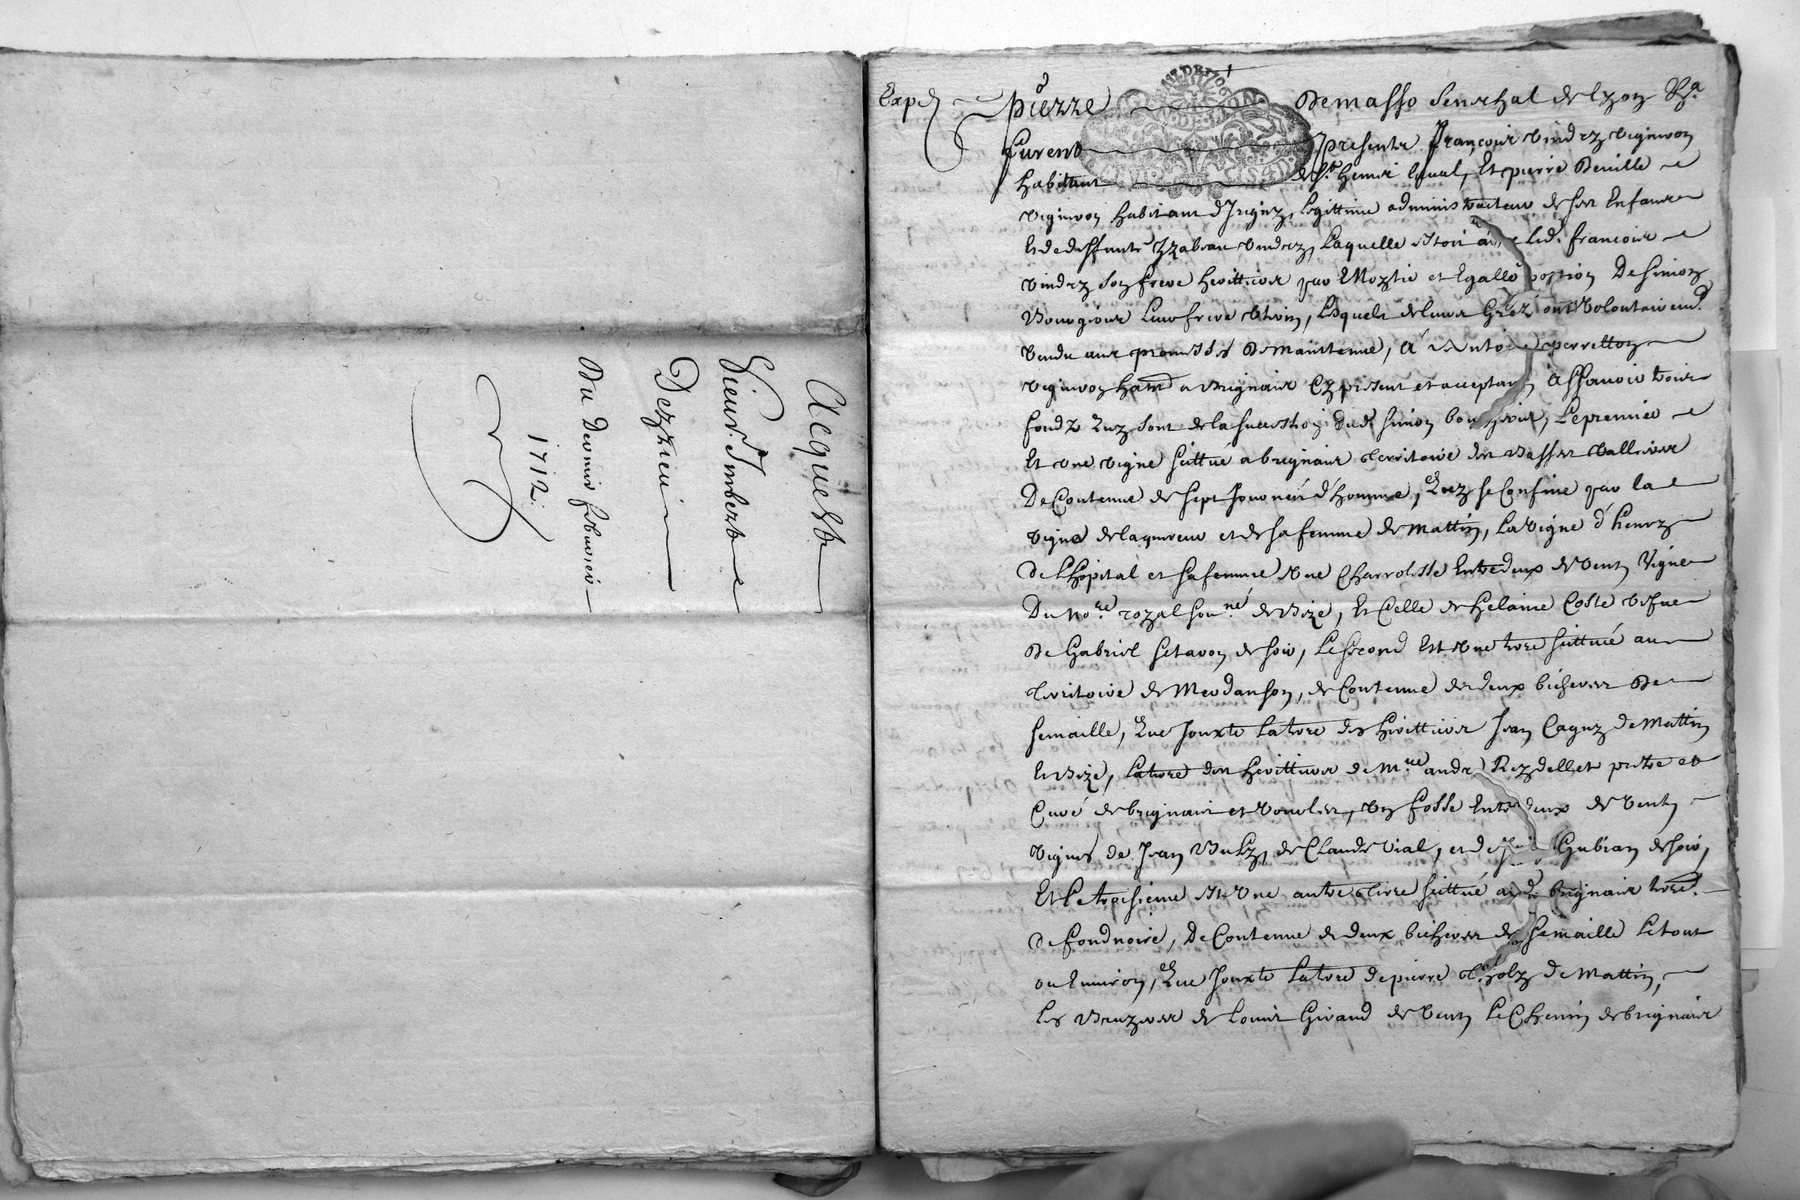 Acquest
Sieur Imbert
Dezzieu
Du dernier febvrier
1712.
Exped
Pierre Demasso senechal de lyon &a.
furent presents françois vindry vigneron
habittant de st. henis laval, Et pierre Deville
vigneron habitant d'Irigny, legittime administrateur de ses Enfans
Et de deffunte Izabeau vindry, laquelle estoit led. francois
vindry son frere herittiers par Moytie et Egalle portion De simon
Bourgeois leur frere vterin, lesquels de leurs grez ont volontairemt.
vendu aux promesses De maintenue, á Antoine perretton
vigneron habt. a Brignais Cy present et acceptant, Assavoir trois
fondz quy sont de la succession Dud. simon bourgeois, le premier
Est vne vigne scittué a brignais territoire des Basses vallieres
De Contenue de sept Journées d'homme, quy se Confine par la
vigne de laquereur et de sa femme de mattin, la vigne d'henry
de l'hopital et sa femme vne Charrolesse Entredeux de vent, vigne
Du nore. royal sousné. de Bize, Et Celle de helaine Coste vefue
De Gabriel setavon de soir, le second Est vne terre scittué au
territoire de Merdanson, de Contenue de deux bicherees De
semaille, que Jouxte la terre des herittiers Jean Caguz de Mattin
Et Bize, la terre des herittiers de Mre. andré Reydellet pretre et
Curé de brignais et vourles, vn fosse Entredeux de vent,
vignes de Jean de Claude vial, et de Gubian de soir,
Et le troisieme est vne autre terre scittué aud. brignais terre.
de fondnoire, De Contenue de deux bicherees de semaille le tout
ou Environ, que Jouxte la terre de pierre de Mattin,
les de louis Girand de vent le Chemin de brignais